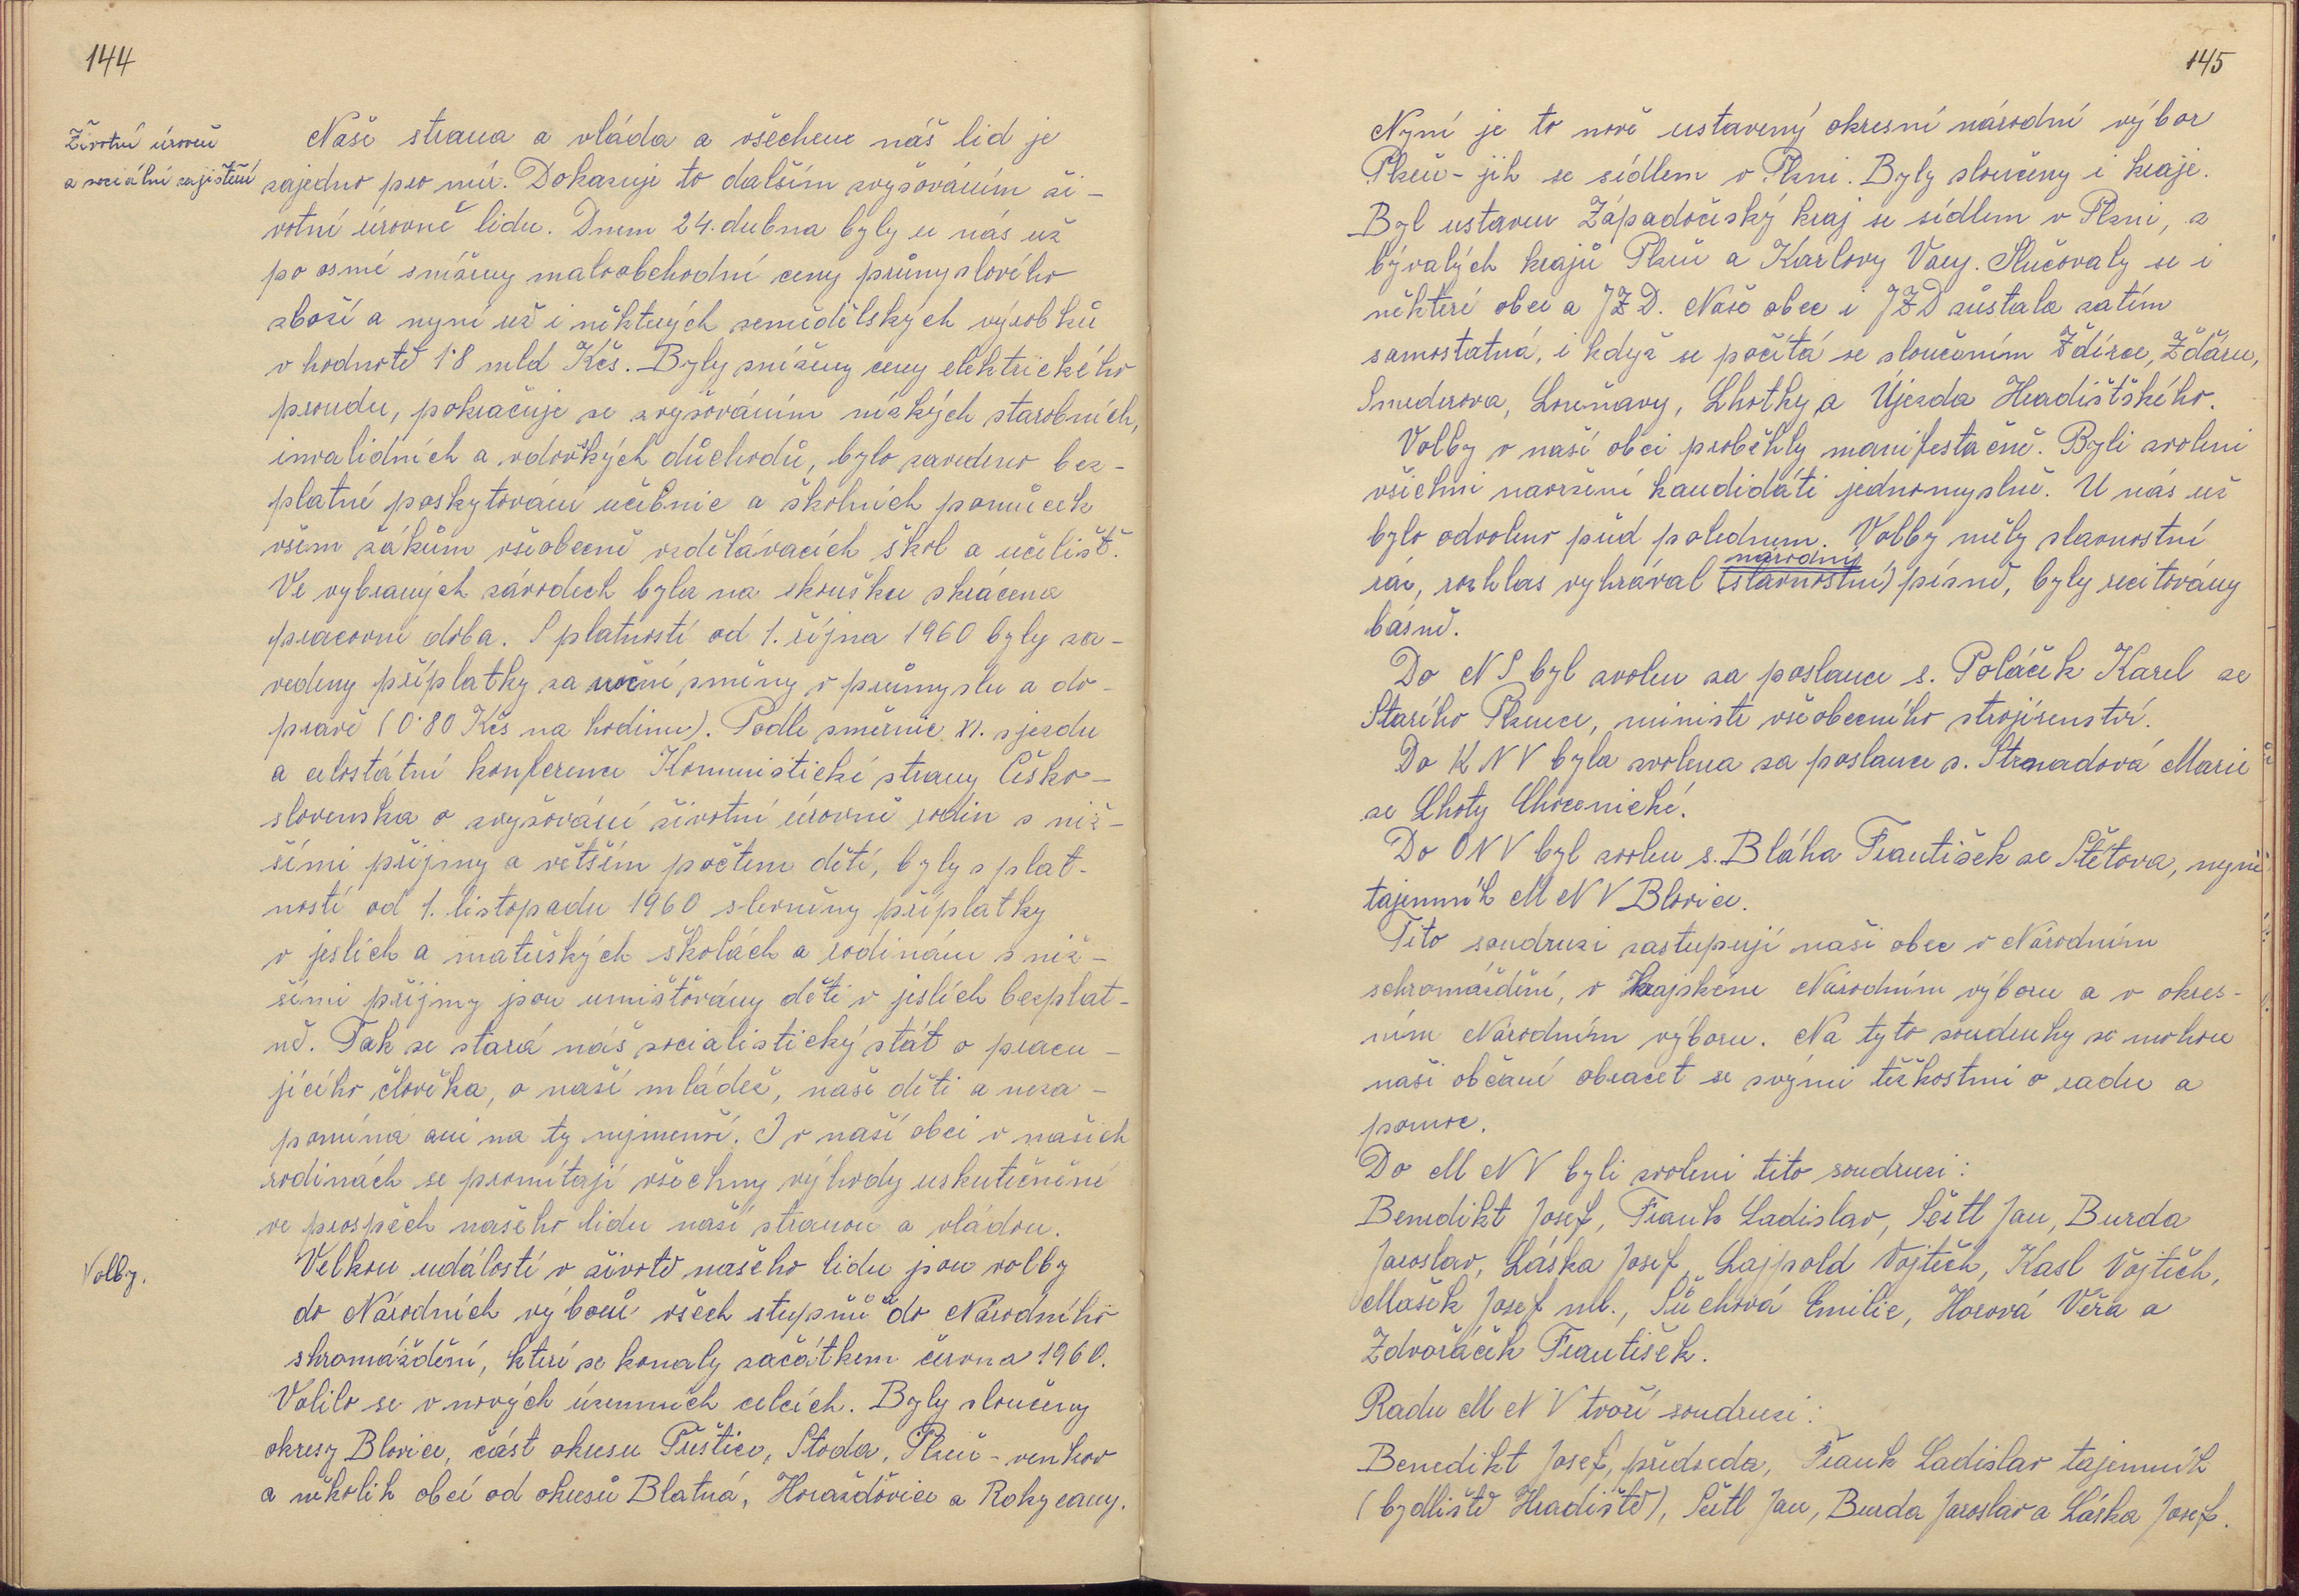 144
Životní úroveň
a sociální zajištění
Naše strana a vláda a všechen náš lid je
zajedno pro mír. Dokazuje to dalším zvyšováním ži-
votní úrovně lidu. Dnem 24. dubna byly u nás už
po osmé sníženy maloobchodní ceny průmyslového
zboží a nyní už i některých zemědělských výrobků
v hodnotě 1·8 mld Kčs. Byly sníženy ceny elektrického
proudu, pokračuje se zvyšováním nízkých starobních,
invalidních a vdovských důchodů, bylo zavedeno bez-
platné poskytování učebnic a školních pomůcek
všem žákům všeobecně vzdělávacích škol a učilišť.
Ve vybraných závodech byla na zkoušku zkrácena
pracovní doba. S platností od 1. října 1960 byly za-
vedeny příplatky za noční směny v průmyslu a do-
pravě (0·80 Kčs na hodinu). Podle směrnic XI. sjezdu
a celostátní konference Komunistické strany Česko-
slovenska o zvyšování životní úrovně rodin s niž-
šími příjmy a větším počtem dětí, byly s plat-
ností od 1. listopadu 1960 slevněny příplatky
v jeslích a mateřských školách a rodinám s niž-
šími příjmy jsou umisťovány děti v jeslích bezplat-
ně. Tak se stará náš socialistický stát o pracu-
jícího člověka, o naší mládež, naše děti a neza-
pomíná ani na ty nejmenší. I v naší obci v našich
rodinách se promítají všechny výhody uskutečněné
ve prospěch našeho lidu naší stranou a vládou.
Volby.
Velkou událostí v životě našeho lidu jsou volby
do Národních výborů všech stupňů a do Národního
shromáždění, které se konaly začátkem června 1960.
Volilo se v nových územních celcích. Byly sloučeny
okresy Blovice, část okresu Přeštice, Stoda, Plzeň-venkov
a několik obcí od okresů Blatná, Horažďovice a Rokycany.
145
Nyní je to nově ustavený okresní národní výbor
Plzeň-jih se sídlem v Plzni. Byly sloučeny i kraje.
Byl ustaven Západočeský kraj se sídlem v Plzni, z
bývalých krajů Plzeň a Karlovy Vary. Slučovaly se i
některé obce a JZD. Naše obec i JZD zůstala zatím
samostatná, i když se počítá se sloučením Ždírce, Žďáru,
Smederova, Louňavy, Lhotky a Újezda Hradišťského.
Volby v naší obci proběhly manifestačně. Byli zvoleni
všichni navržení kandidáti jednomyslně. U nás už
bylo odvoleno před polednem. Volby měly slavnostní
národní
ráz, rozhlas vyhrával (slavnostní) písně, byly recitovány
básně.
Do NS byl zvolen za poslance s. Poláček Karel ze
Starého Plzence, ministr všeobecného strojírenství.
Do KNV byla zvolena za poslance s. Strnadová Marie
ze Lhoty Chocenické.
Do ONV byl zvolen s. Bláha František ze Štítova, nyní
tajemník MNV Blovice.
Tito soudruzi zastupují naši obec v Národním
schromáždění, v Krajském Národním výboru a v okres-
ním Národním výboru. Na tyto soudruhy se mohou
naši občané obracet se svými těžkostmi o radu a
pomoc.
Do MNV byli zvoleni tito soudruzi:
Benedikt Josef, Frank Ladislav, Šestl Jan, Burda
Jaroslav, Láska Josef, Lajpold Vojtěch, Kasl Vojtěch,
Mašek Josef ml., Súchová Emilie, Horová Věra a
Zdvořáček František.
Radu MNV tvoří soudruzi:
Benedikt Josef, předseda, Frank Ladislav tajemník
(bydliště Hradiště), Šestl Jan, Burda Jaroslav a Láska Josef.